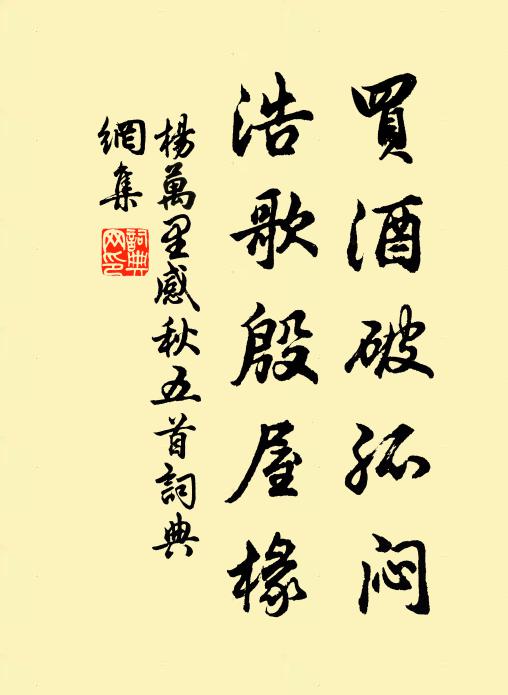 買酒破孤闷
浩歌殷屋椽
楊萬里感秋五首詞典
網集
詞典
网印